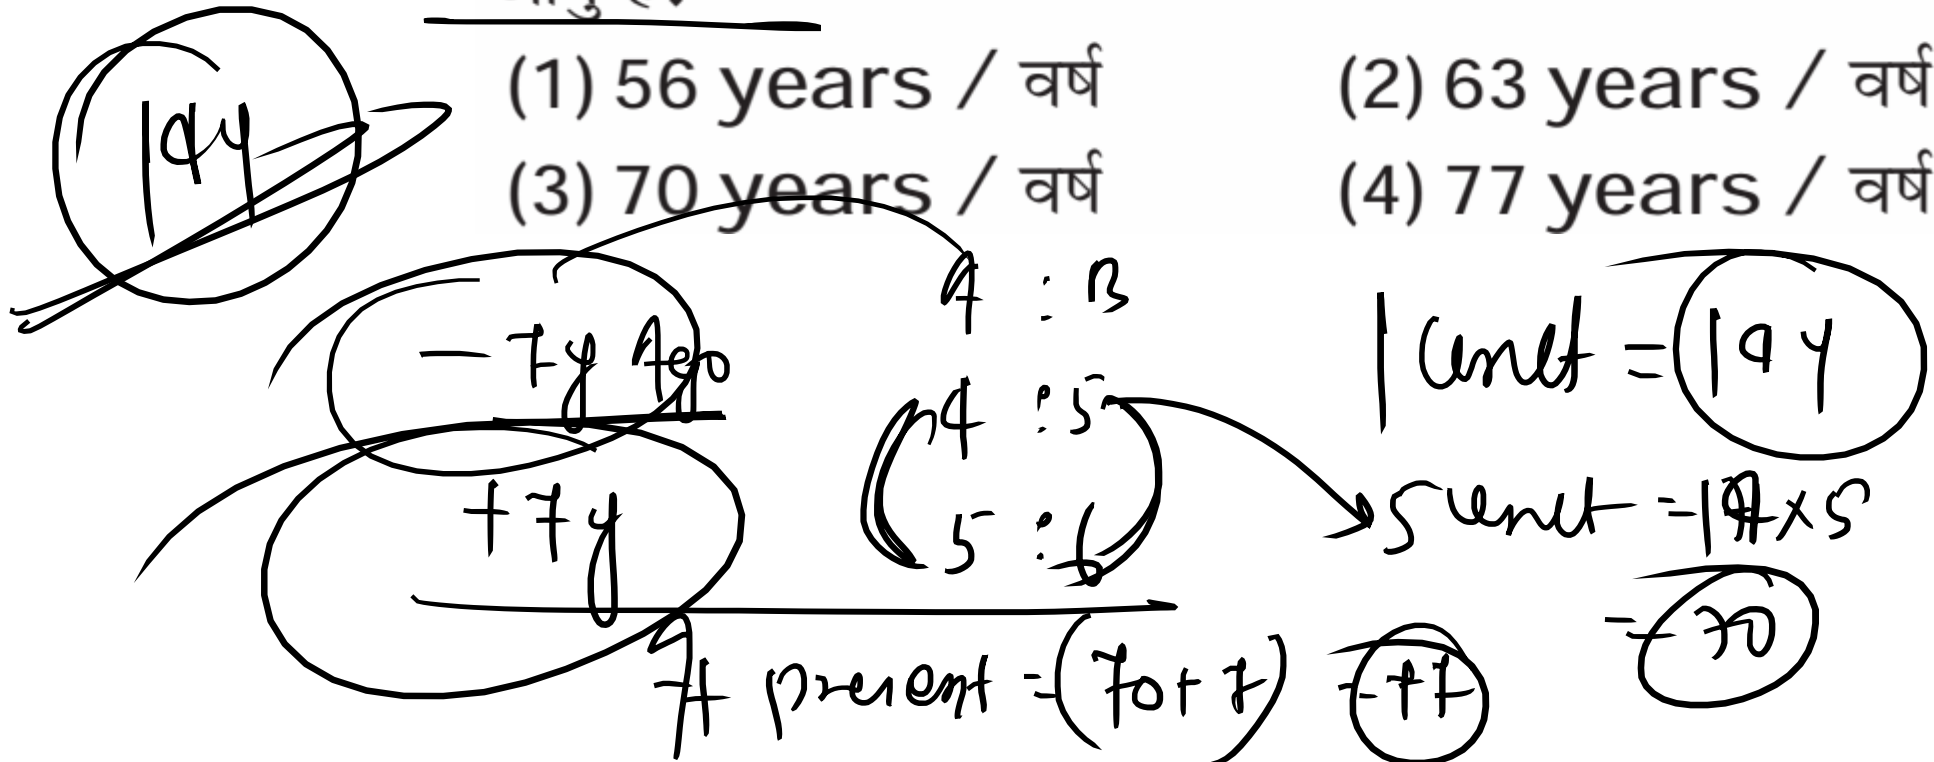 (1) 56 years / वर्ष (2) 63 years / वर्ष
(3) 70 years / वर्ष (4) 77 years / वर्ष
14y
A : B
- 7y Ago 4 : 5
1 unit = 14y
+ 7y 5 : 6
5 unit = 14 x 5
= 70
A present = (70 + 7) = 77